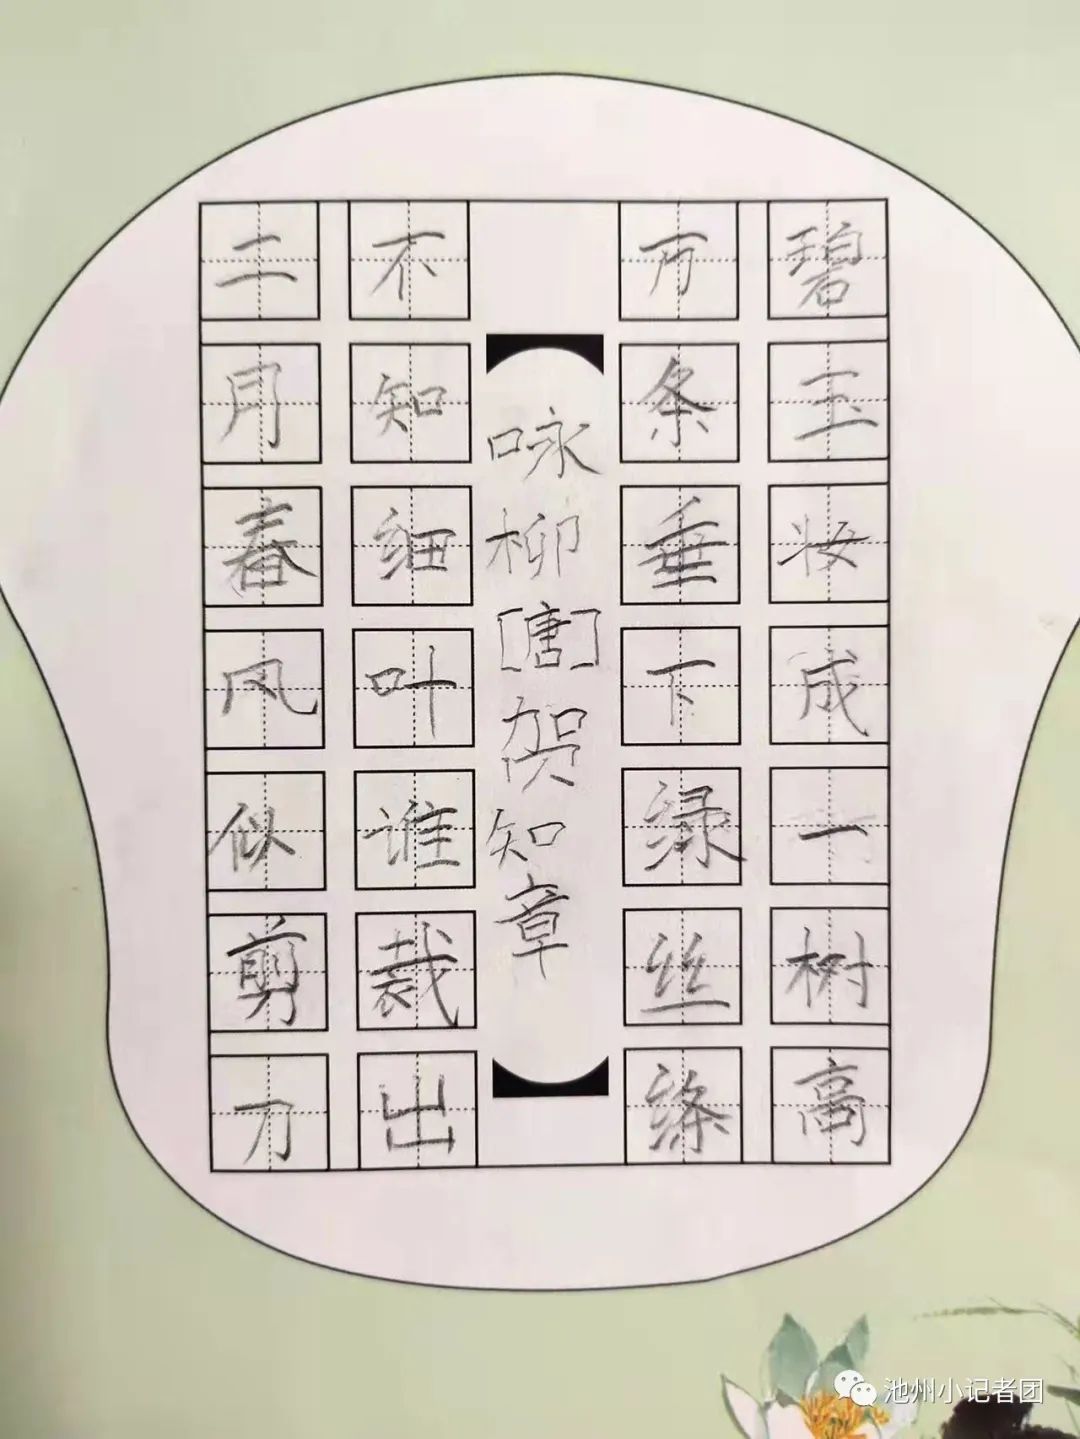 碧玉妆成一树高
万条垂下绿丝绦
咏柳[唐]贺知章
不知细叶谁裁出
二月春风似剪刀
池州小记者团